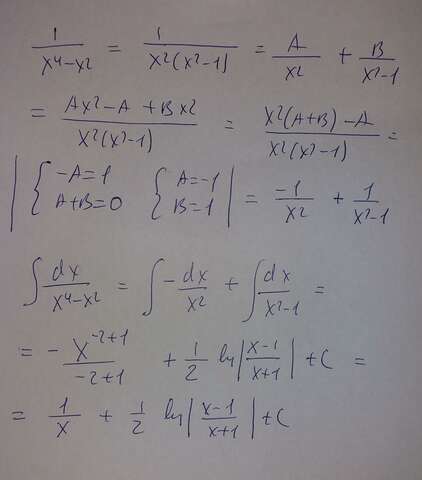 1/(x⁴-x²) = 1/(x²(x²-1)) = A/x² + B/(x²-1)
= (Ax²-A+Bx²)/(x²(x²-1)) = (x²(A+B)-A)/(x²(x²-1)) =
| { -A=1, A+B=0 { A=-1, B=1 | = -1/x² + 1/(x²-1)
∫ dx/(x⁴-x²) = ∫ -dx/x² + ∫ dx/(x²-1) =
= - x^(-2+1)/(-2+1) + 1/2 ln|(x-1)/(x+1)| + C =
= 1/x + 1/2 ln|(x-1)/(x+1)| + C